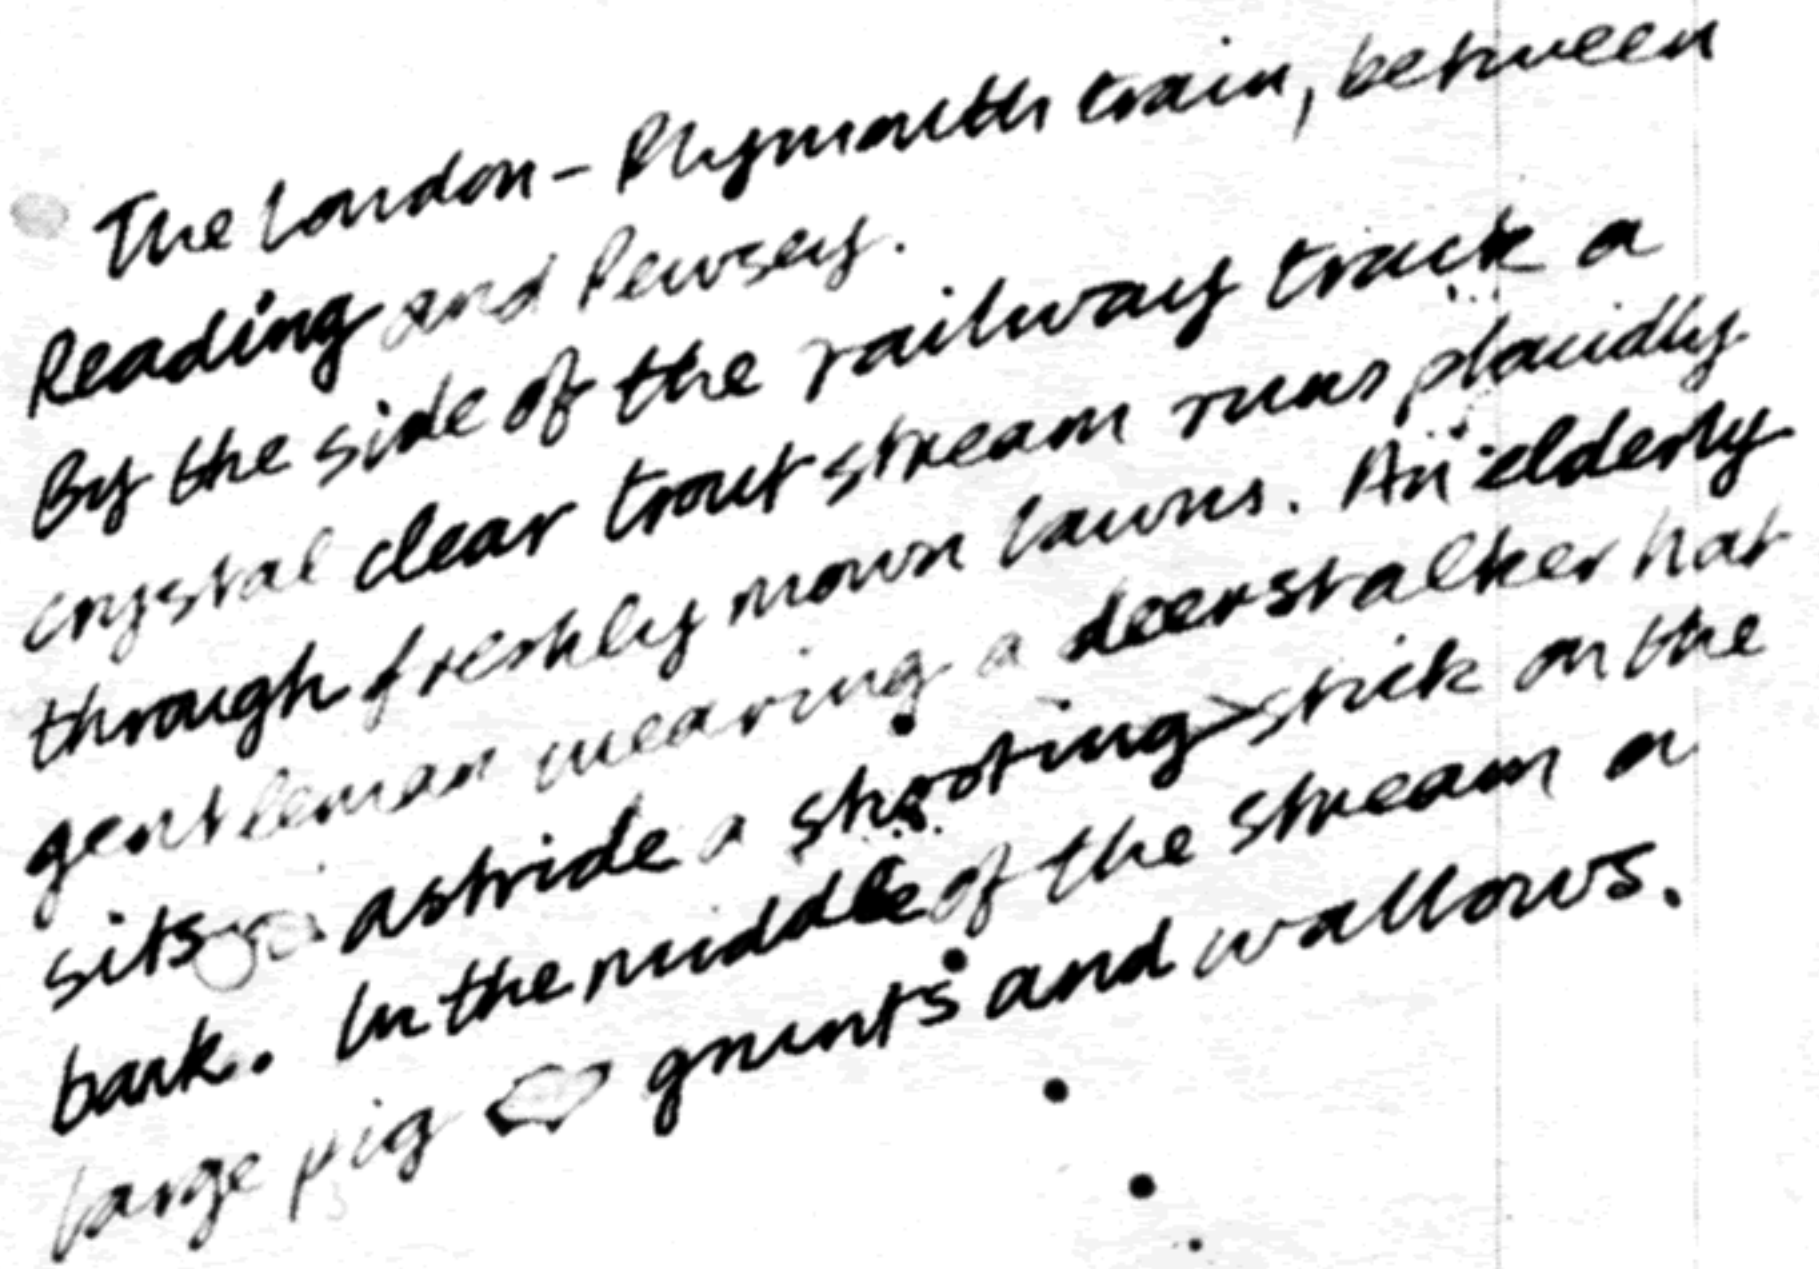 The London - Plymouth train, between
Reading and Pewsey.
By the side of the railway track a
crystal clear trout stream runs placidly
through freshly mown lawns. An elderly
gentleman wearing a deerstalker hat
sits astride a shooting stick on the
bank. In the middle of the stream a
large pig grunts and wallows.